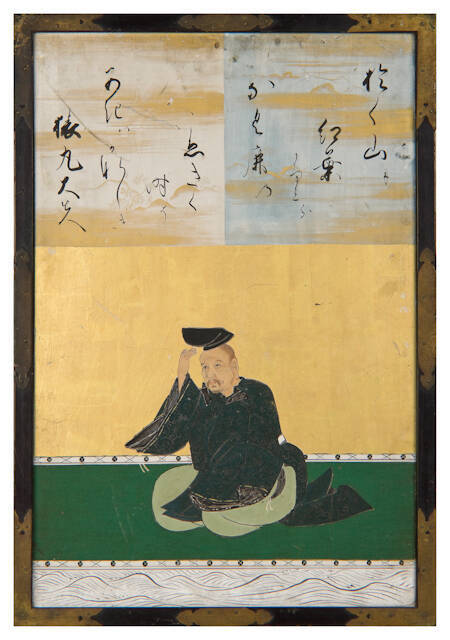 おく山に
紅葉
ふみわけ
なく鹿の
こゑきく
時そ
あきはかなしき
猿丸大夫